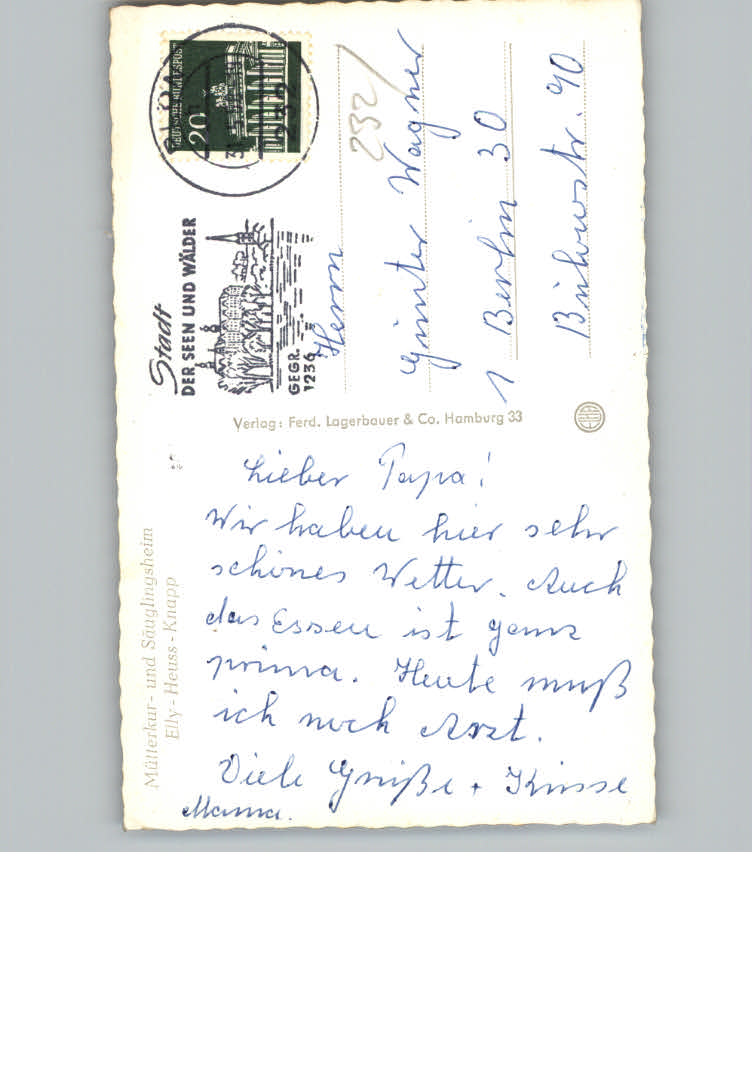 Lieber Papa!
Wir haben hier sehr
schönes Wetter. Auch
das Essen ist ganz
prima. Heute muß
ich noch Arzt.
Viele Grüße + Küsse
Mama.
Mütterkur- und Säuglingsheim
Elly-Heuss-Knapp
Verlag: Ferd. Lagerbauer & Co. Hamburg 33
Stadt
DER SEEN UND WÄLDER
GEGR.
1236
DEUTSCHE BUNDESPOST
20
PLÖN
232
232/
Herrn
Günter Wagner
1 Berlin 30
Bülowstr. 90